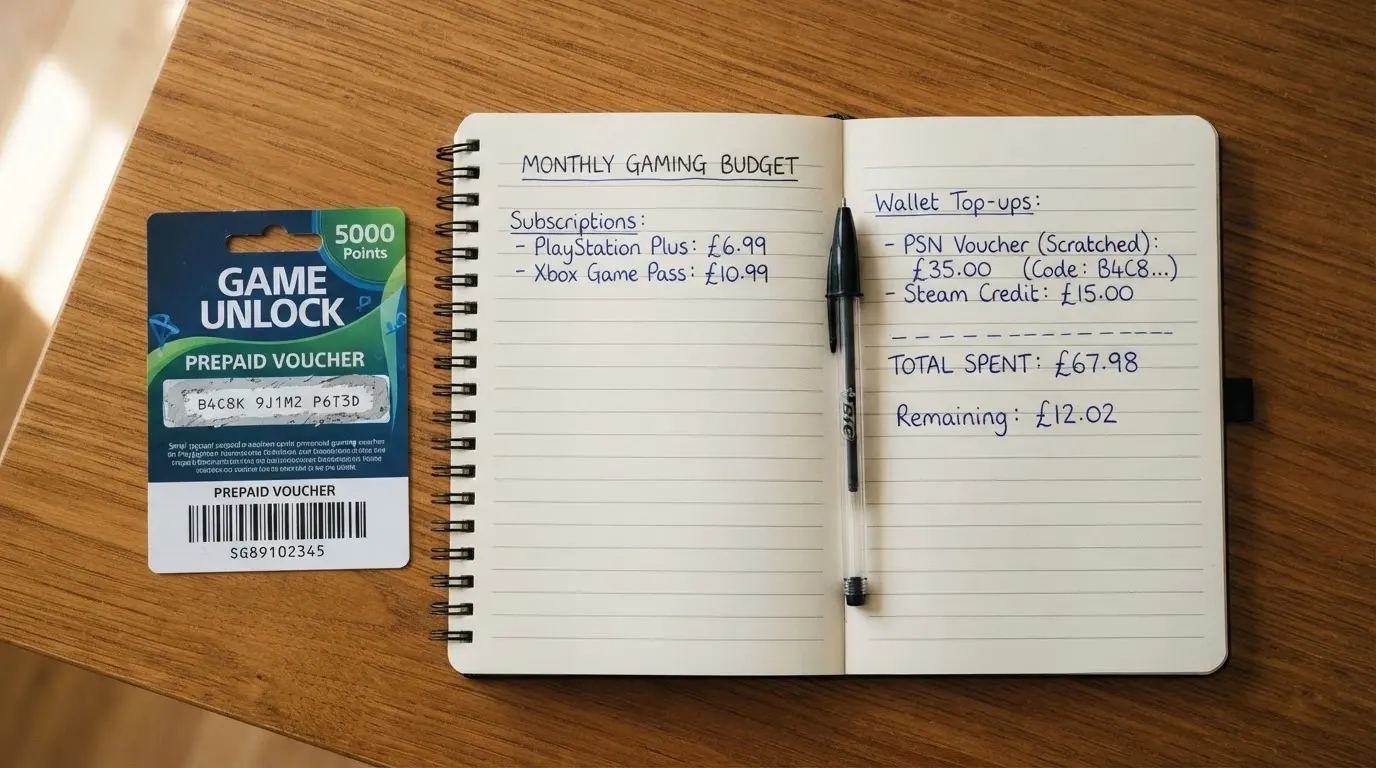 5000
Points
GAME
UNLOCK
PREPAID VOUCHER
B4C8K 9J1M2 P6T3D
PREPAID VOUCHER
SG89102345
MONTHLY GAMING BUDGET
Subscriptions:
- PlayStation Plus: £6.99
- Xbox Game Pass: £10.99
Wallet Top-ups:
- PSN Voucher (Scratched):
£35.00 (Code: B4C8...)
- Steam Credit: £15.00
TOTAL SPENT: £67.98
Remaining: £12.02
BIC